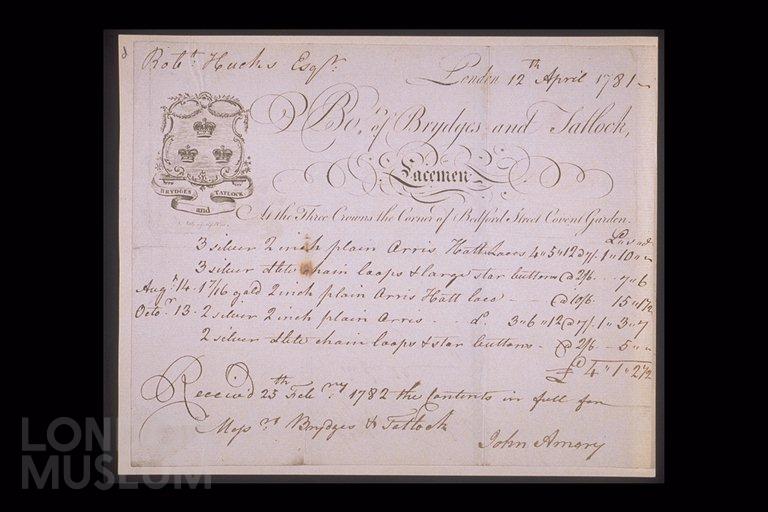 Robt. Hucks Esqr.
London 12th April 1781
Bot. of Brydges and Tatlock,
Lacemen
BRYDGES and TATLOCK
At the Three Crowns the Corner of Bedford Street Covent Garden.
L s d
3 silver 2 inch plain Arris Hatt Laces 4"5"12 @ 7/. 1"10"
3 silver chain loops & large star buttons @ 2/6 - - 7"6
Augt. 14. 1 7/16 gold 2 inch plain Arris Hatt lace - - @ 10/6. 15"1½
Octor. 13. 2 silver 2 inch plain Arris - - do. 3"6"12 @ 7/. 1"3"7
2 silver chain loops & star buttons - @ 2/6 - 5"
£ 4"1"2½
Receiv'd 25th Febry. 1782 the Contents in full for
Messrs. Brydges & Tatlock
John Amory
LONDON
MUSEUM